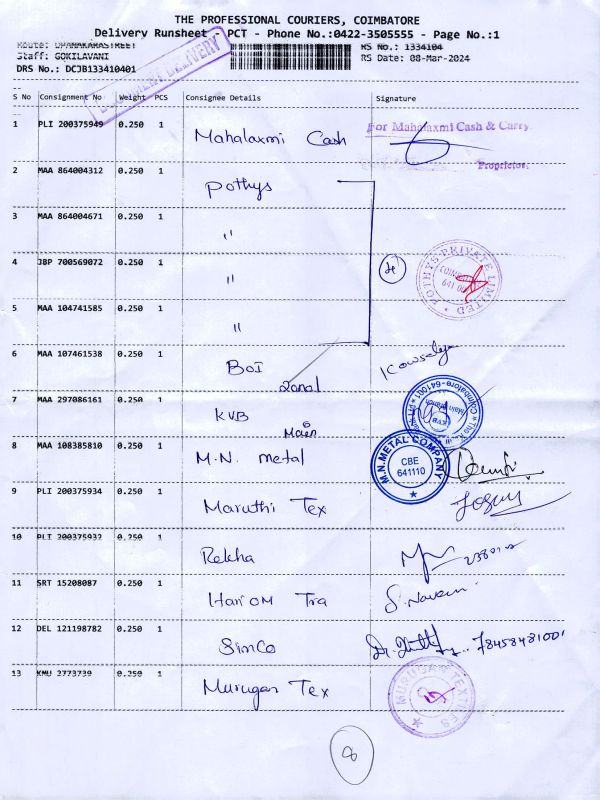 THE PROFESSIONAL COURIERS, COIMBATORE
Delivery Runsheet - PCT - Phone No.:0422-3505555 - Page No.:1
Route: UPANAKARASTREET RS No.: 1334104
Staff: GOKILAVANI RS Date: 08-Mar-2024
DRS No.: DCJB133410401
DELIVERY
S No Consignment No Weight PCS Consignee Details Signature
1 PLI 200375949 0.250 1 Mahalaxmi Cash For Mahalaxmi Cash & Carry
Proprietor
2 MAA 864004312 0.250 1 Pothys
3 MAA 864004671 0.250 1 "
4 JBP 700569072 0.250 1 " 4 POTHYS PRIVATE LIMITED
641 001
5 MAA 104741585 0.250 1 "
6 MAA 107461538 0.250 1 BOI Kowsalya
Zonal
7 MAA 297086161 0.250 1 KVB Coimbatore-641001
Main
8 MAA 108385810 0.250 1 M.N. metal M.N.METAL COMPANY
CBE
641110
9 PLI 200375934 0.250 1 Maruthi Tex
10 PLI 200375932 0.250 1 Rekha
11 SRT 15208087 0.250 1 Hari OM Tra S. Naveen
12 DEL 121198782 0.250 1 Sinco 7845848100
13 KMU 2773739 0.250 1 Murugan Tex MURUGAN TEXTILES
8